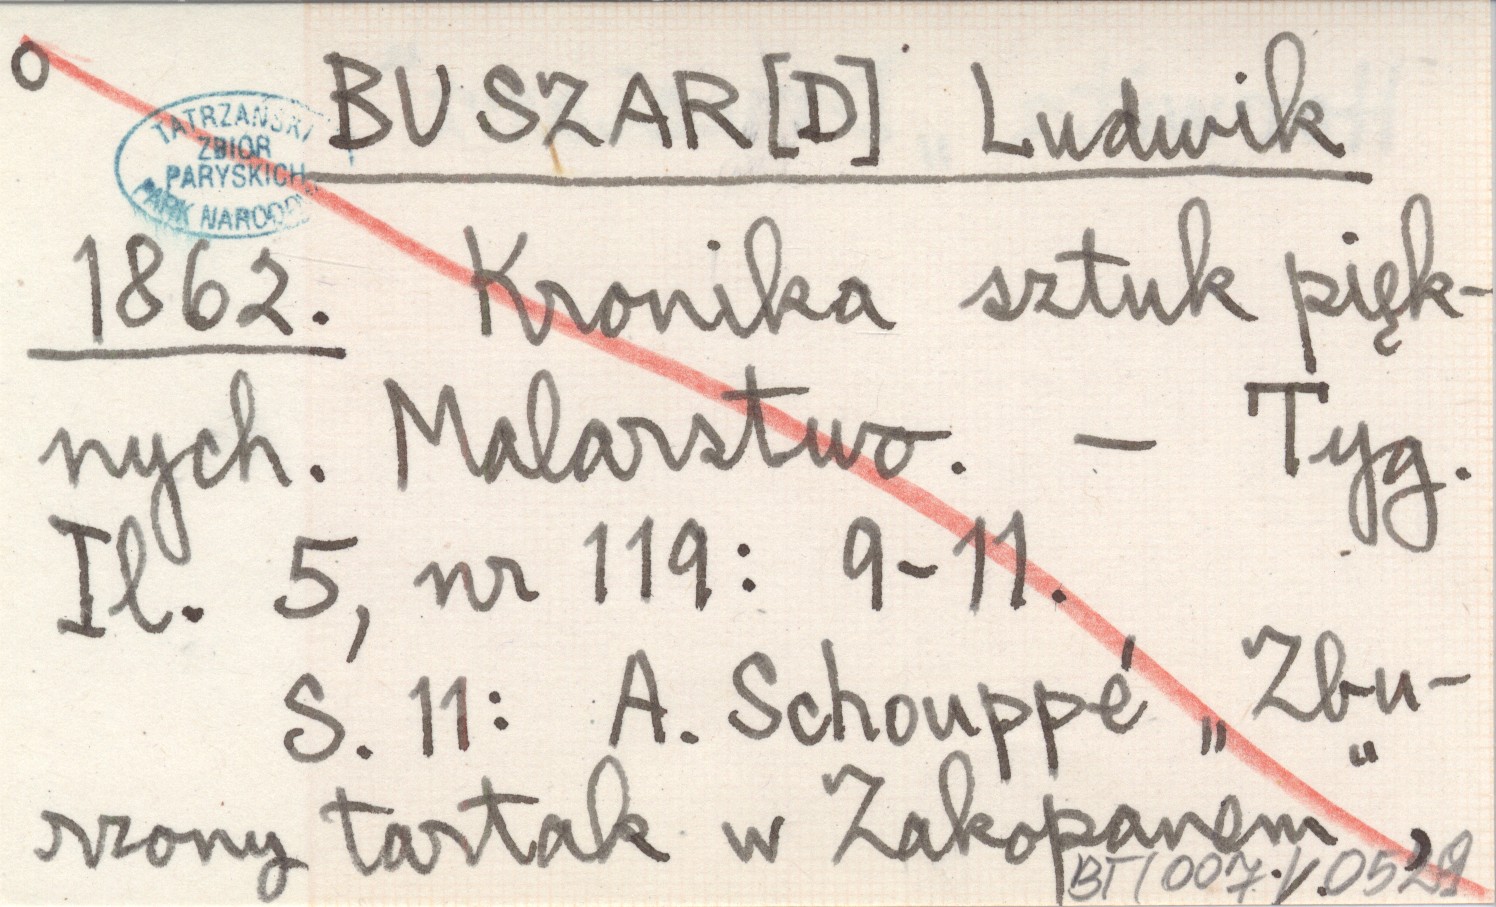 o BUSZAR[D] Ludwik
TATRZAŃSKI
ZBIÓR
PARYSKICH
PARK NAROD
1862. Kronika sztuk pięk-
nych. Malarstwo. - Tyg.
Il. 5, nr 119: 9-11.
S. 11: A. Schouppé „Zbu-
rzony tartak w Zakopanem",
BT/007./.0529